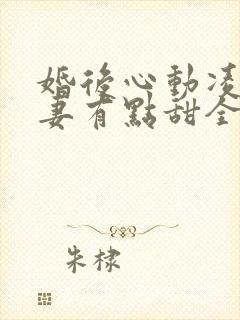 婚後心動凌
妻有點甜全
朱棣